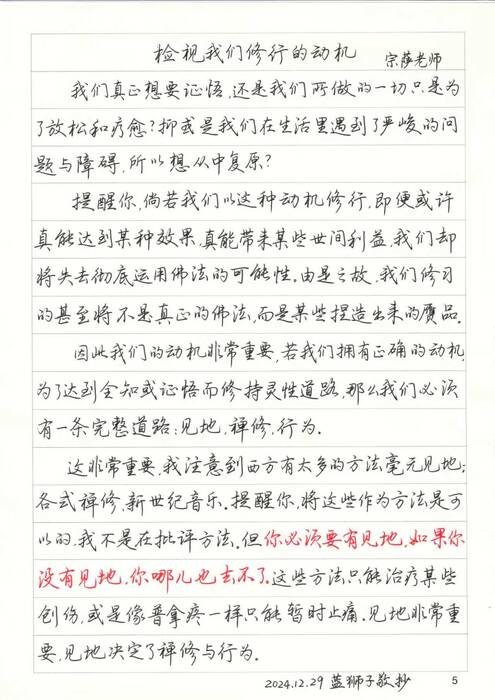 检视我们修行的动机 宗萨老师
我们真正想要证悟,还是我们所做的一切只是为
了放松和疗愈?抑或是我们在生活里遇到了严峻的问
题与障碍,所以想从中复原?
提醒你,倘若我们以这种动机修行,即便或许
真能达到某种效果,真能带来某些世间利益,我们却
将失去彻底运用佛法的可能性。由是之故,我们修习
的甚至将不是真正的佛法,而是某些捏造出来的赝品。
因此我们的动机非常重要,若我们拥有正确的动机,
为了达到全知或证悟而修持灵性道路,那么我们必须
有一条完整道路:见地,禅修,行为。
这非常重要,我注意到西方有太多的方法毫无见地;
各式禅修,新世纪音乐。提醒你,将这些作为方法是可
以的,我不是在批评方法。但你必须要有见地,如果你
没有见地,你哪儿也去不了。这些方法只能治疗某些
创伤,或是像普拿疼一样只能暂时止痛。见地非常重
要,见地决定了禅修与行为。
2024.12.29 蓝狮子敬抄 5